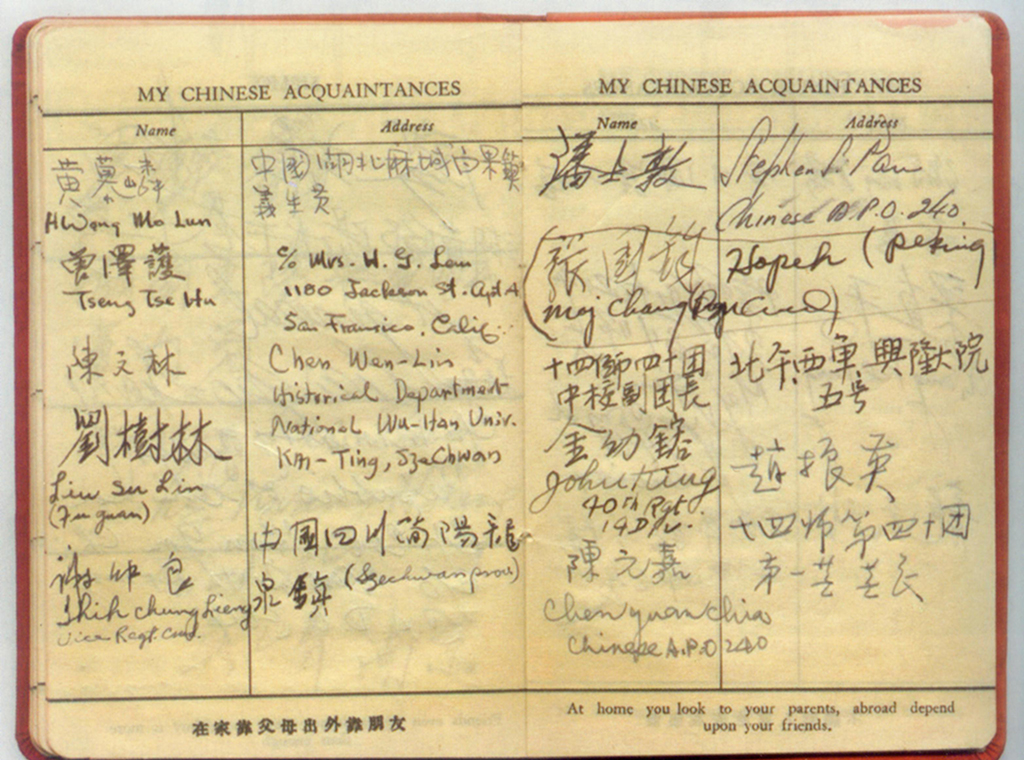 MY CHINESE ACQUAINTANCES
Name Address
黃慕
中國湖北麻城白果鎮
義生
HWang Mo Lun
曾澤護
Tseng Tse Hu
c/o Mrs. W. G. Lew
1180 Jackson St. Apt A
San Francisco, Calif.
陳文林
Chen Wen-Lin
Historical Department
National Wu-Han Univ.
Kia-Ting, SzeChwan
劉樹林
Liu Su Lin
中國四川簡陽龍
泉鎮 (Szechwan prov)
Shih Chung Lieng
Vice Regt. Cmd.
在家靠父母出外靠朋友
MY CHINESE ACQUAINTANCES
Name Address
潘士敦 Stephen S. Pan
Chinese A.P.O. 240
張國 Hopeh (Peking
Maj Chang (Regt Cmd)
十四師四十团
中校副团長
北平西單興隆大院
五号
金幼鎔
John King
40th Rgt.
14 Div.
趙振英
十四师第四十团
第一营营长
陳元嘉
Chen Yuan Chia
Chinese A.P.O 240
At home you look to your parents, abroad depend
upon your friends.